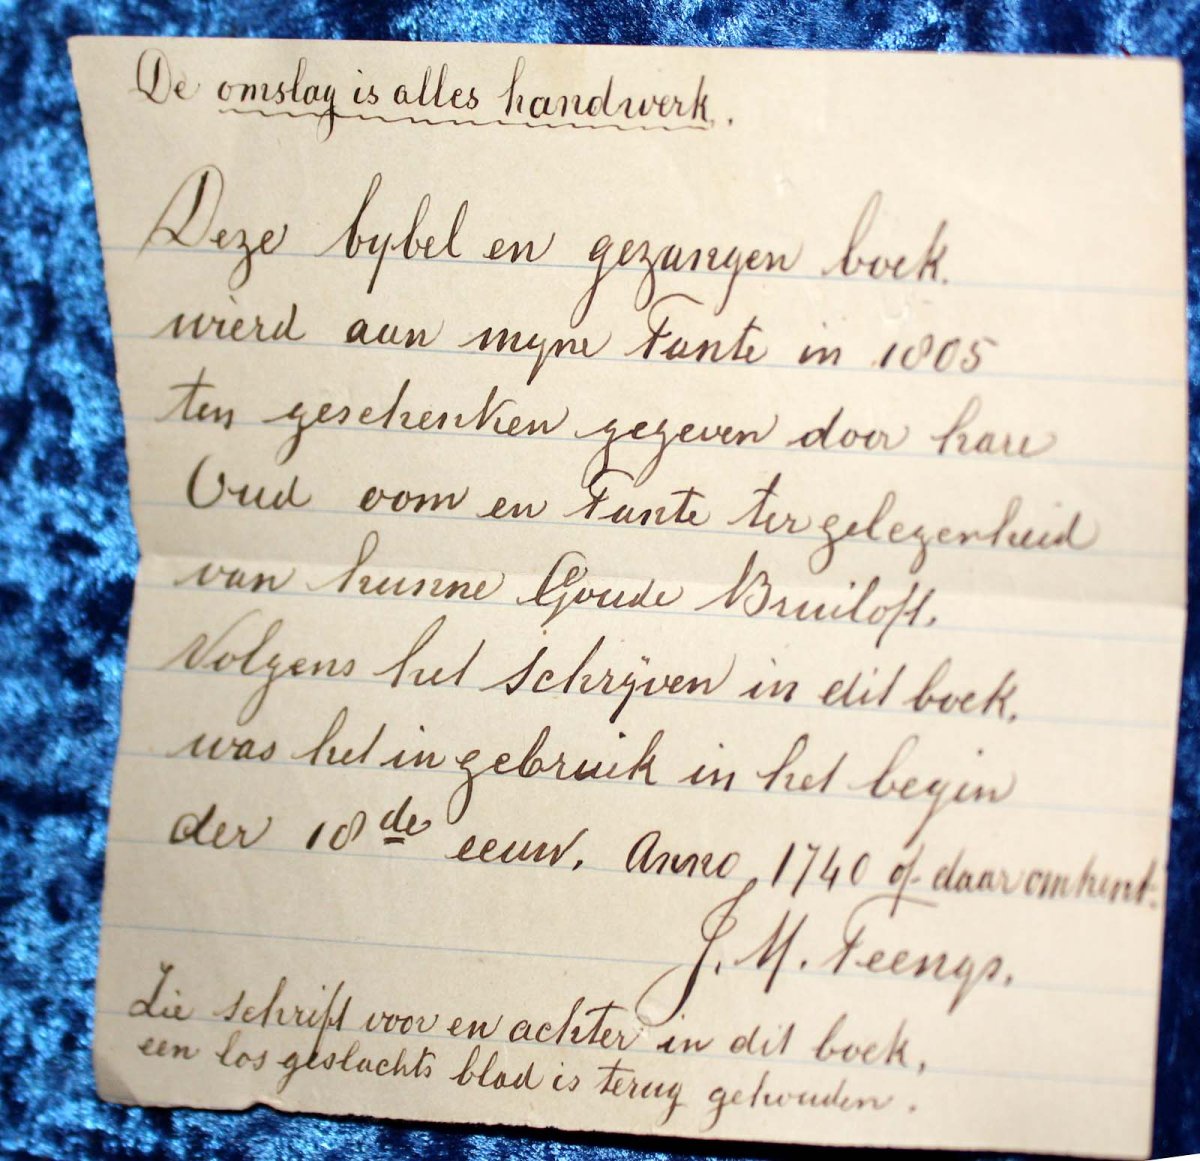 De omslag is alles handwerk.
Deze bybel en gezangen boek.
wierd aan myne Tante in 1805
ten geschenken gegeven door hare
Oud oom en Tante ter gelegenheid
van hunne Goude Bruiloft.
Volgens het schrijven in dit boek.
was het in gebruik in het begin
der 18de eeuw. Anno 1740 of daaromhent.
J. M. Teengs.
Zie schrift voor en achter in dit boek,
een los geslachts blad is terug gehouden.